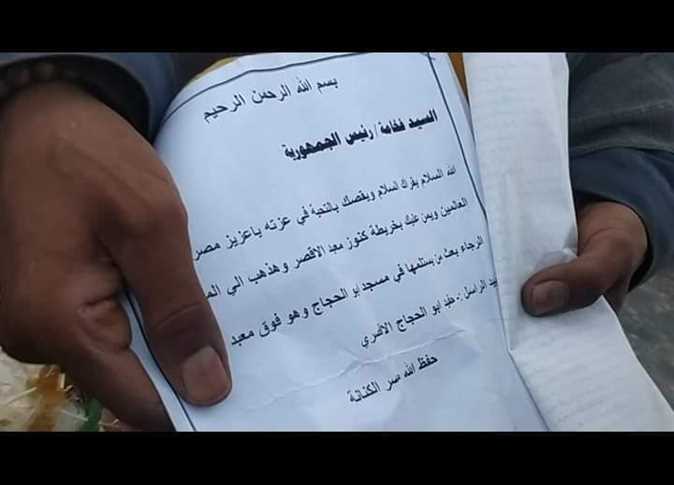 بسم الله الرحمن الرحيم
السيد فخامة/ رئيس الجمهورية
الله السلام يقراك السلام ويخصك بالتحية في عزته ياعزيز مصر
العالمين ويمن عليك بخريطة كنوز معبد الاقصر وهذهب الي
الرجاء بعث من يستلمها في مسجد ابو الحجاج وهو فوق معبد
الراسل :- حفيد ابو الحجاج الاقصري
حفظ الله مصر الكنانة